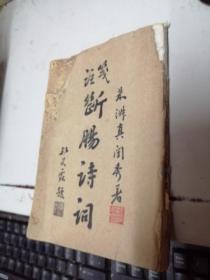 朱淑真閨秀著
箋註斷腸詩詞
題